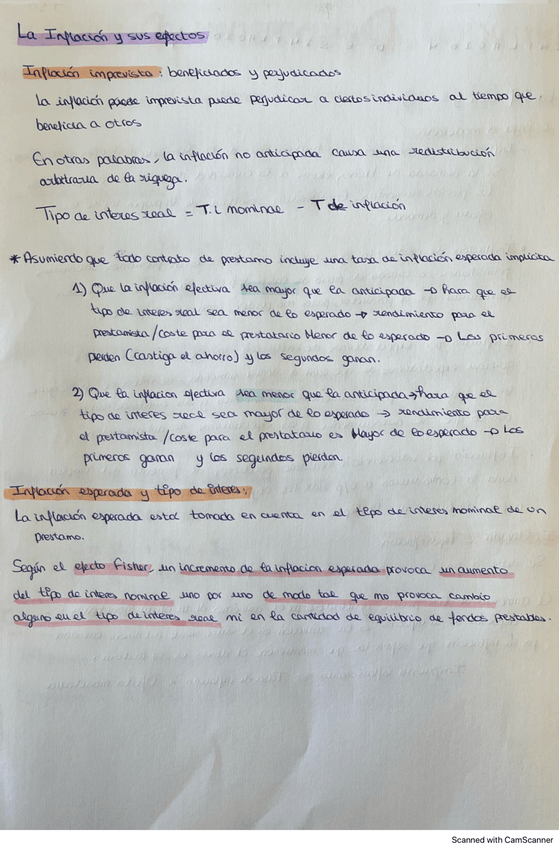 La Inflación y sus efectos
Inflación imprevista: beneficiados y perjudicados
La inflación puede imprevista puede perjudicar a ciertos individuos al tiempo que
beneficia a otros
En otras palabras, la inflación no anticipada causa una redistribución
arbitraria de la riqueza.
Tipo de interes real = T.i nominal - T de inflación
* Asumiendo que todo contrato de prestamo incluye una tasa de inflación esperada implicita
1) Que la inflación efectiva sea mayor que la anticipada → Hara que el
tipo de interes real sea menor de lo esperado → rendimiento para el
prestamista/coste para el prestatario Menor de lo esperado → Los primeros
pierden (castiga el ahorro) y los segundos ganan.
2) Que la inflacion efectiva sea menor que la anticipada → Hara que el
tipo de interes real sea mayor de lo esperado → rendimiento para
el prestamista /coste para el prestatario es Mayor de lo esperado → Los
primeros ganan y los segundos pierden.
Inflación esperada y tipo de interes:
La inflación esperada está tomada en cuenta en el tipo de interes nominal de un
prestamo.
Según el efecto Fisher, un incremento de la inflacion esperada provoca un aumento
del tipo de interes nominal uno por uno de modo tal que no provoca cambio
alguno en el tipo de interes real ni en la cantidad de equilibrio de fondos prestables.
Scanned with CamScanner